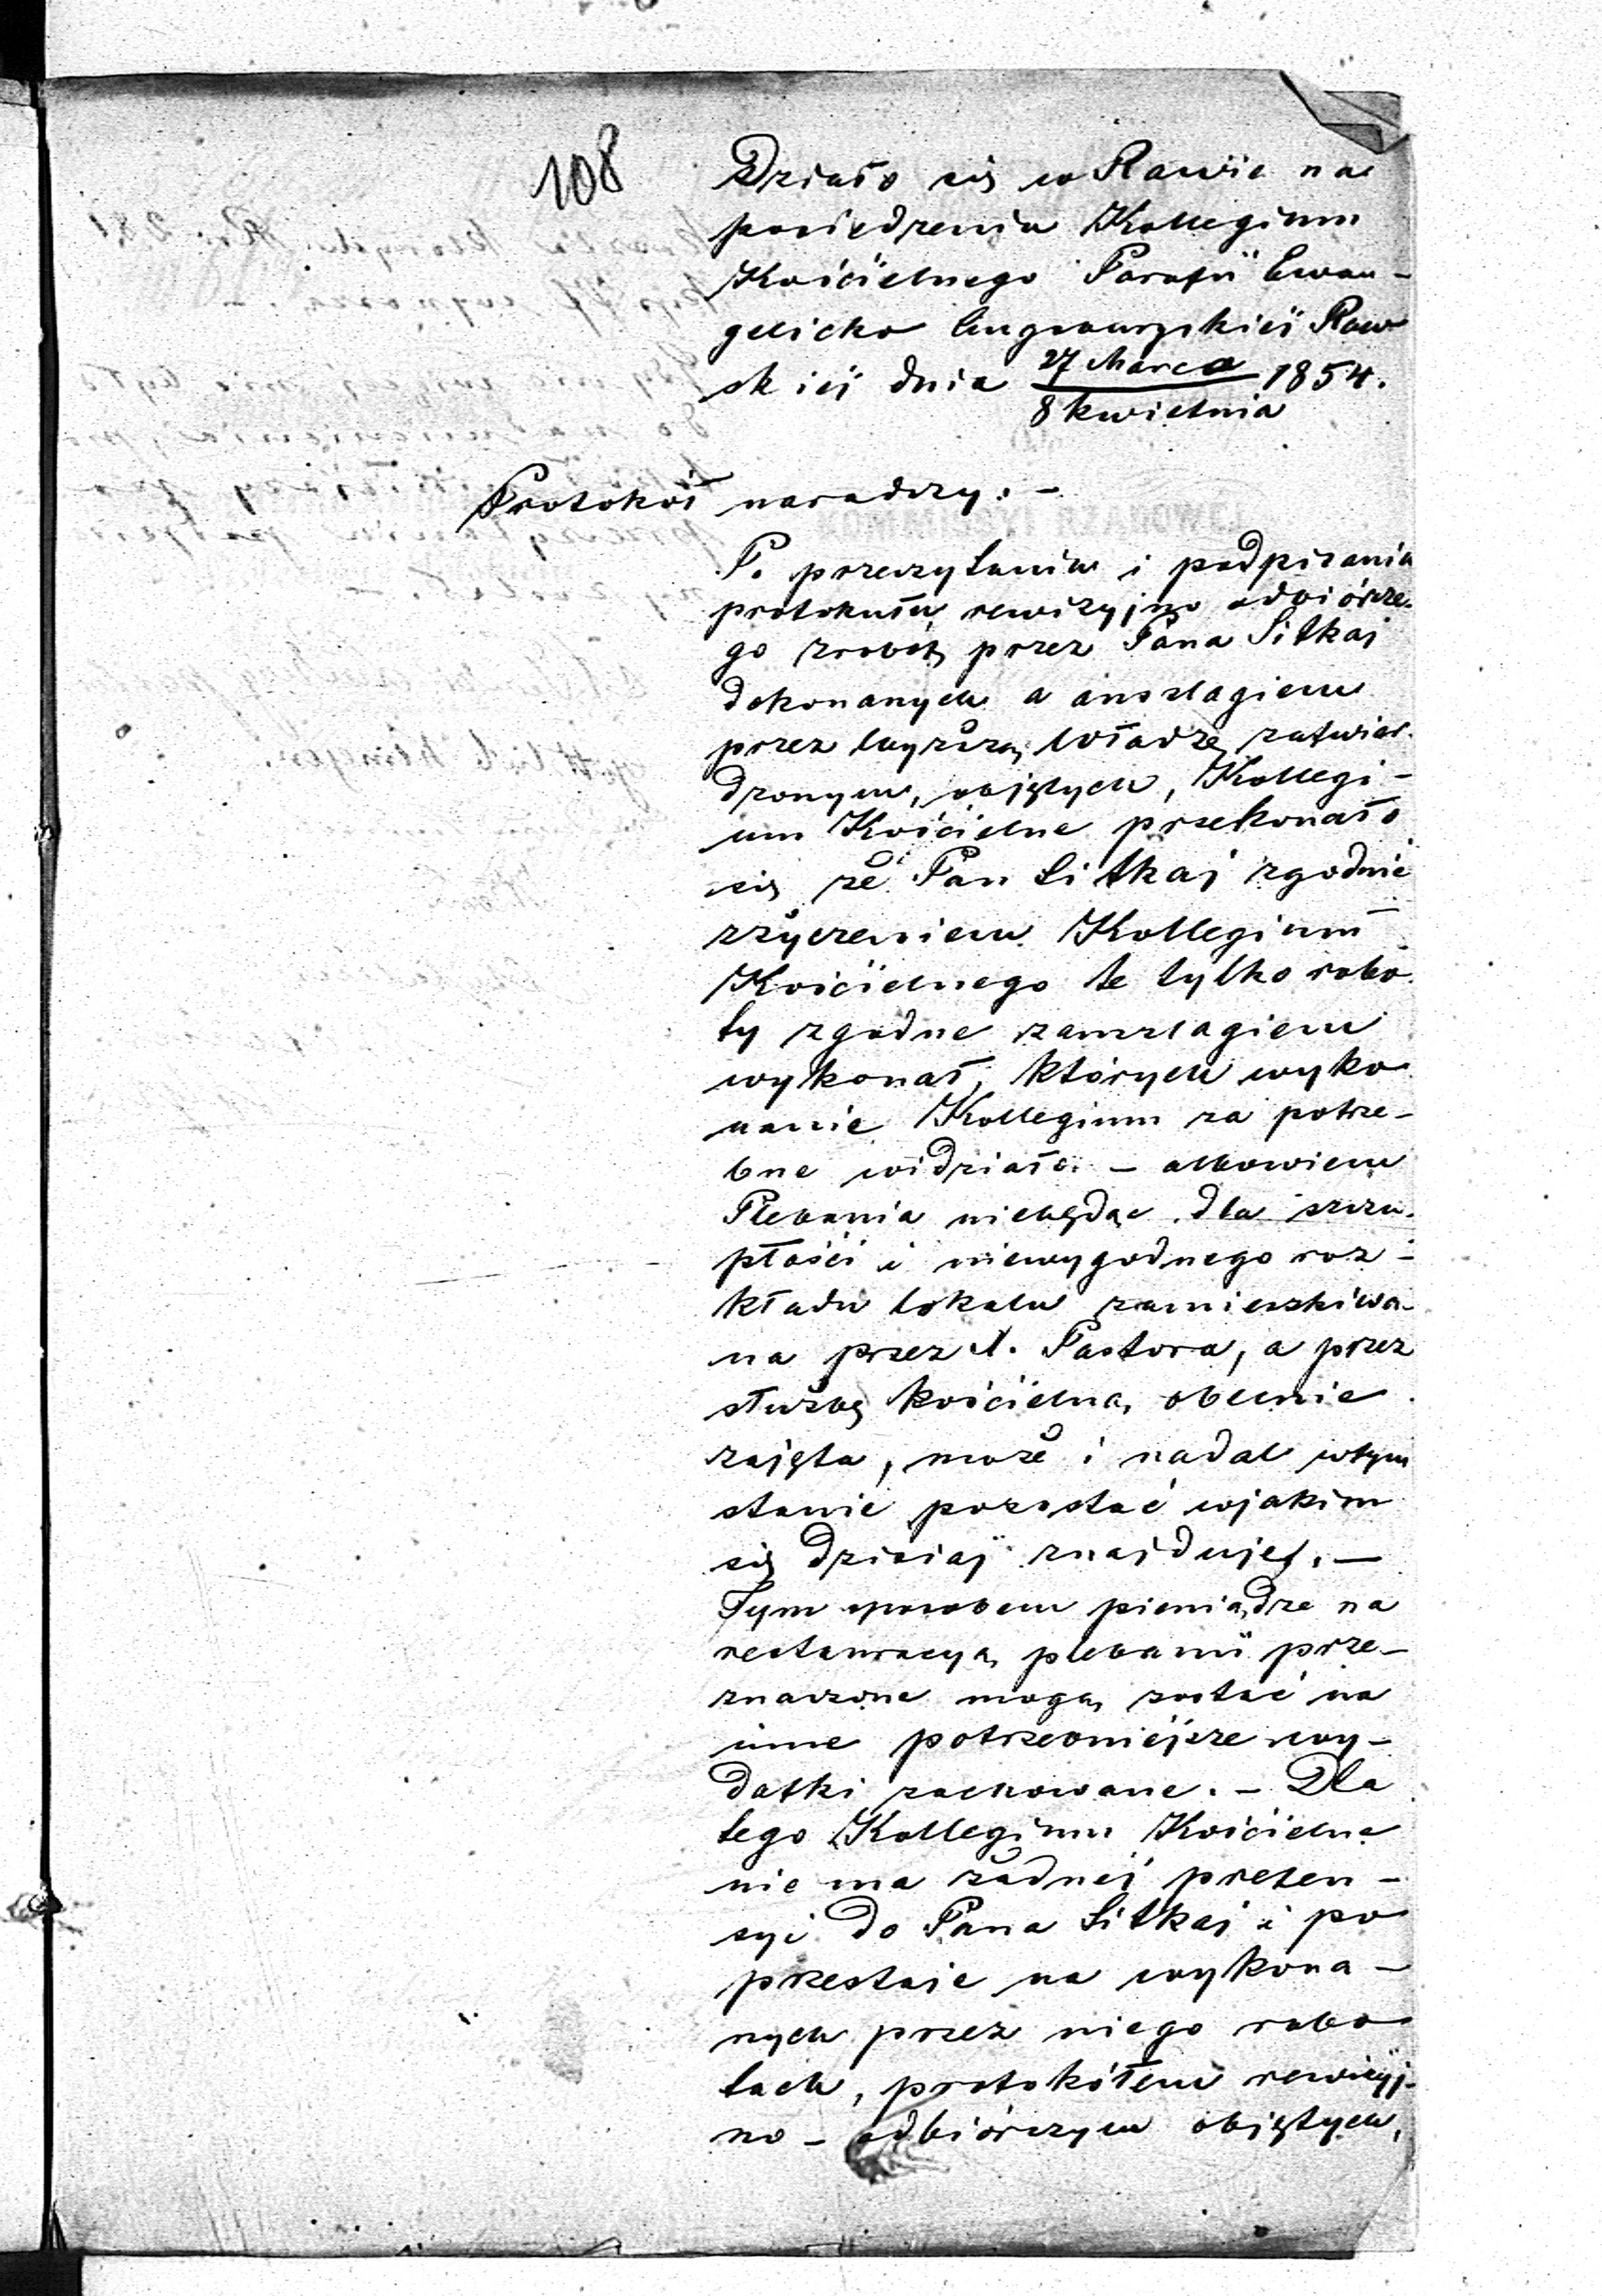 108
Działo się w Rawie na
posiedzeniu Kollegium
Kościelnego Parafii Ewan-
gelicko Augsburgskiéj Raw
skiéj dnia 27 Marca / 8 kwietnia 1854.
Protokół naradczy. -
Po przeczytaniu i podpisaniu
protokułu rewizyjno odbiórcze-
go robót przez Pana Sitkaj
dokonanych a anszlagiem
przez wyższą Władzę zatwier-
dzonym, objętych, Kollegi-
um Kościelne przekonało
się że Pan Sitkaj zgodnie
zżyczeniem Kollegium
Kościelnego te tylko robo-
ty zgodne zanszlagiem
wykonał, których wyko
nanie Kollegium za potrze-
bne widziało. - albowiem
Plebania niebędąc dla szczu-
płości i niewygodnego roz-
kładu lokalu zamieszkiwa-
na przez X. Pastora, a przez
służbę kościelną obecnie
zajęta, może i nadal wtym
stanie pozostać wjakim
się dzisiaj znajduje. -
Tym sposobem pieniądze na
restauracyą plebanii prze-
znaczone mogą zostać na
inne potrzebniejsze wy-
datki zachowane. - Dla
tego Kollegium Kościelne
nie ma żadnéj preten-
syi do Pana Sitkaj i po
przestaje na wykona-
nych przez niego robo
tach, protokółem rewizyj-
no - odbiórczym objętych,